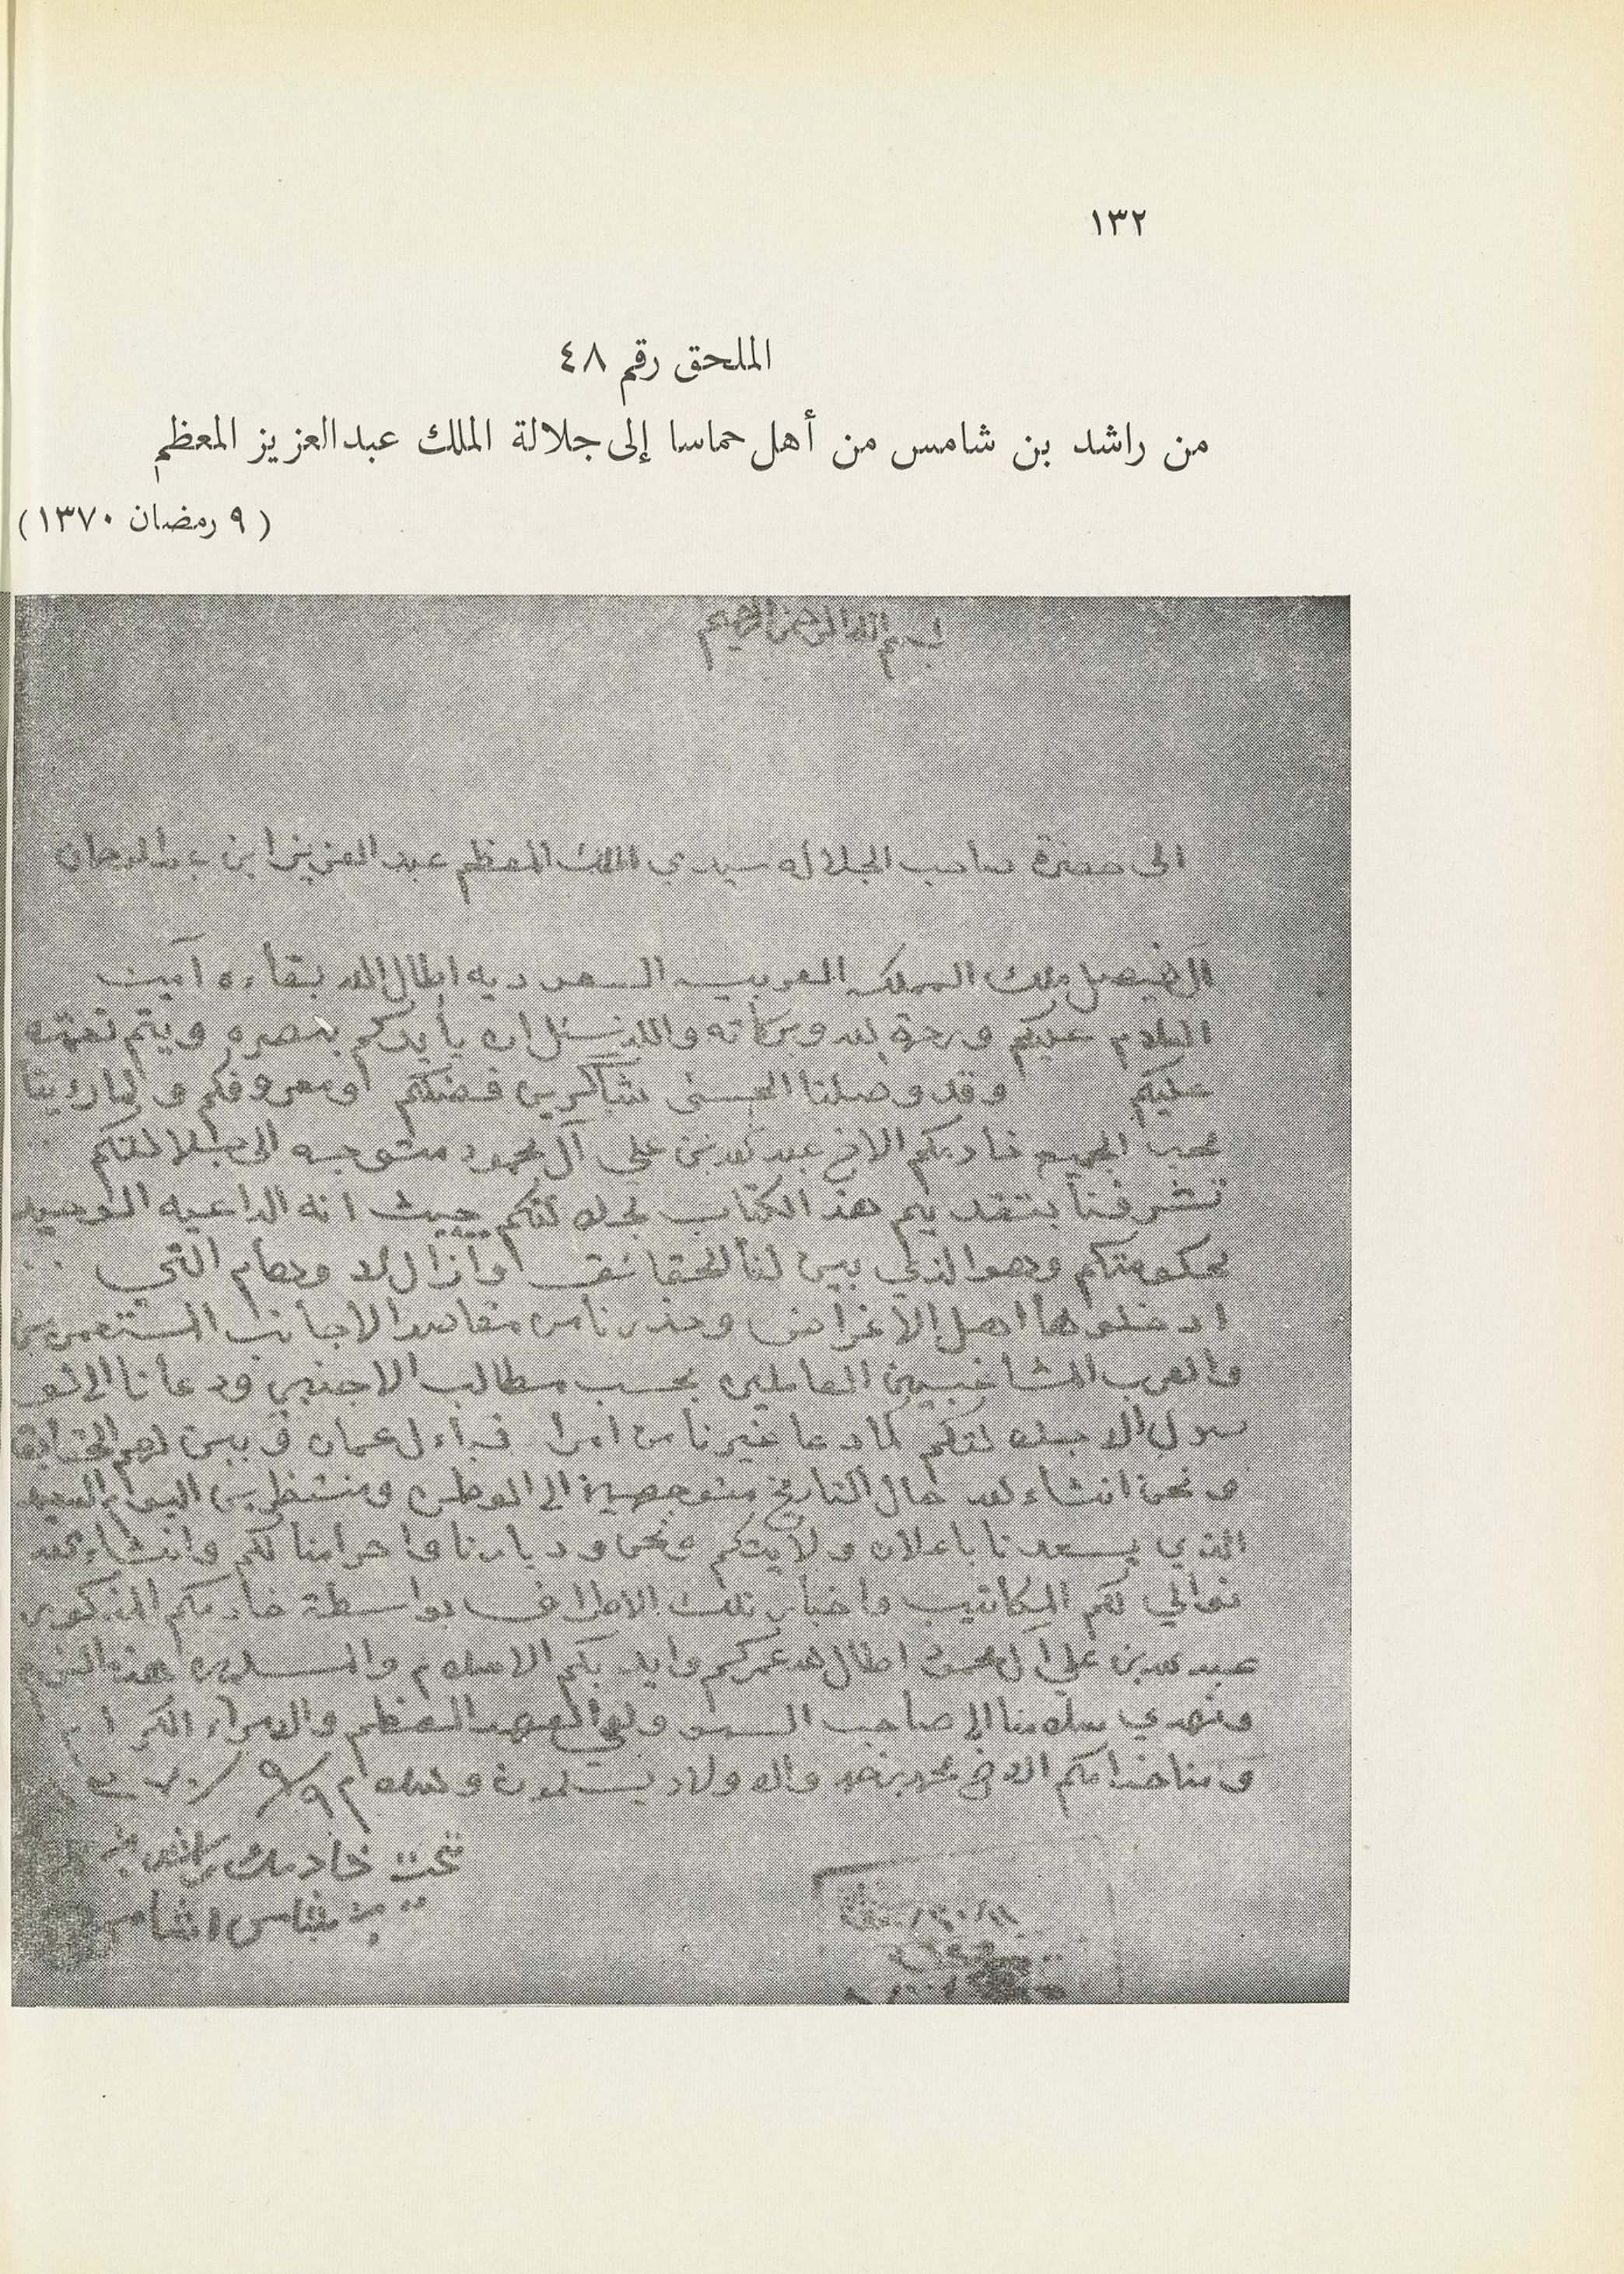 ١٣٢
الملحق رقم ٤٨
من راشد بن شامس من أهل حماسا إلى جلالة الملك عبدالعزيز المعظم
( ٩ رمضان ١٣٧٠ )
بسم الله الرحمن الرحيم
الى حضرة صاحب الجلاله سيدي الملك المعظم عبد العزيز ابن عبد الرحمان
ال فيصل ملك المملكه العربيه السعوديه اطال الله بقاءه آمين
السلام عليكم ورحمة الله وبركاته والله نسئل ان يأيدكم بنصره ويتم نعمته
عليكم وقد وصلنا الحسى شاكرين فضلكم ومعروفكم ولما رءينا
محب الجميع خادمكم الاخ عبد الله بن علي آل محمود متوجه الى جلالتكم
تشرفنا بتقديم هذ الكتاب لجلالتكم حيث انه الداعيه الوحيد
لحكومتكم وهو الذي بين لنا الحقائق وازال الاوهام التي
ادخلوها اهل الاغراض وحذرنا من مقاصد الاجانب المستعمرين
والعرب المشاغبين العاملين بحسب مطالب الاجنبي ودعانا الى الو
صول الا جلالتكم كما دعا غيرنا من امرا قباءل عمان وبين لهم الحقايق
ونحن انشاء الله حال التاريخ متوجهين الى الوطن ومنتظرين اليوم السعيد
الذي يسعدنا باعلان ولايتكم ونحن وديارنا واحرامنا لكم وانشاء الله
نوالي لكم المكاتيب واخبار تلك الاطراف بواسطة خادمكم المذكور
عبد الله بن علي ال محمود اطال الله عمركم وايد بكم الاسلام والمسلمين هذا
ونهدي سلامنا الا صاحب السمو ولي العهد المعظم والامراء الكرام
ومنا خدامكم الاخ محمد بن حمد والاولاد يسلمون والسلام ٩/٩/٧٠
خادمك راشد بن
شامس الشامسي